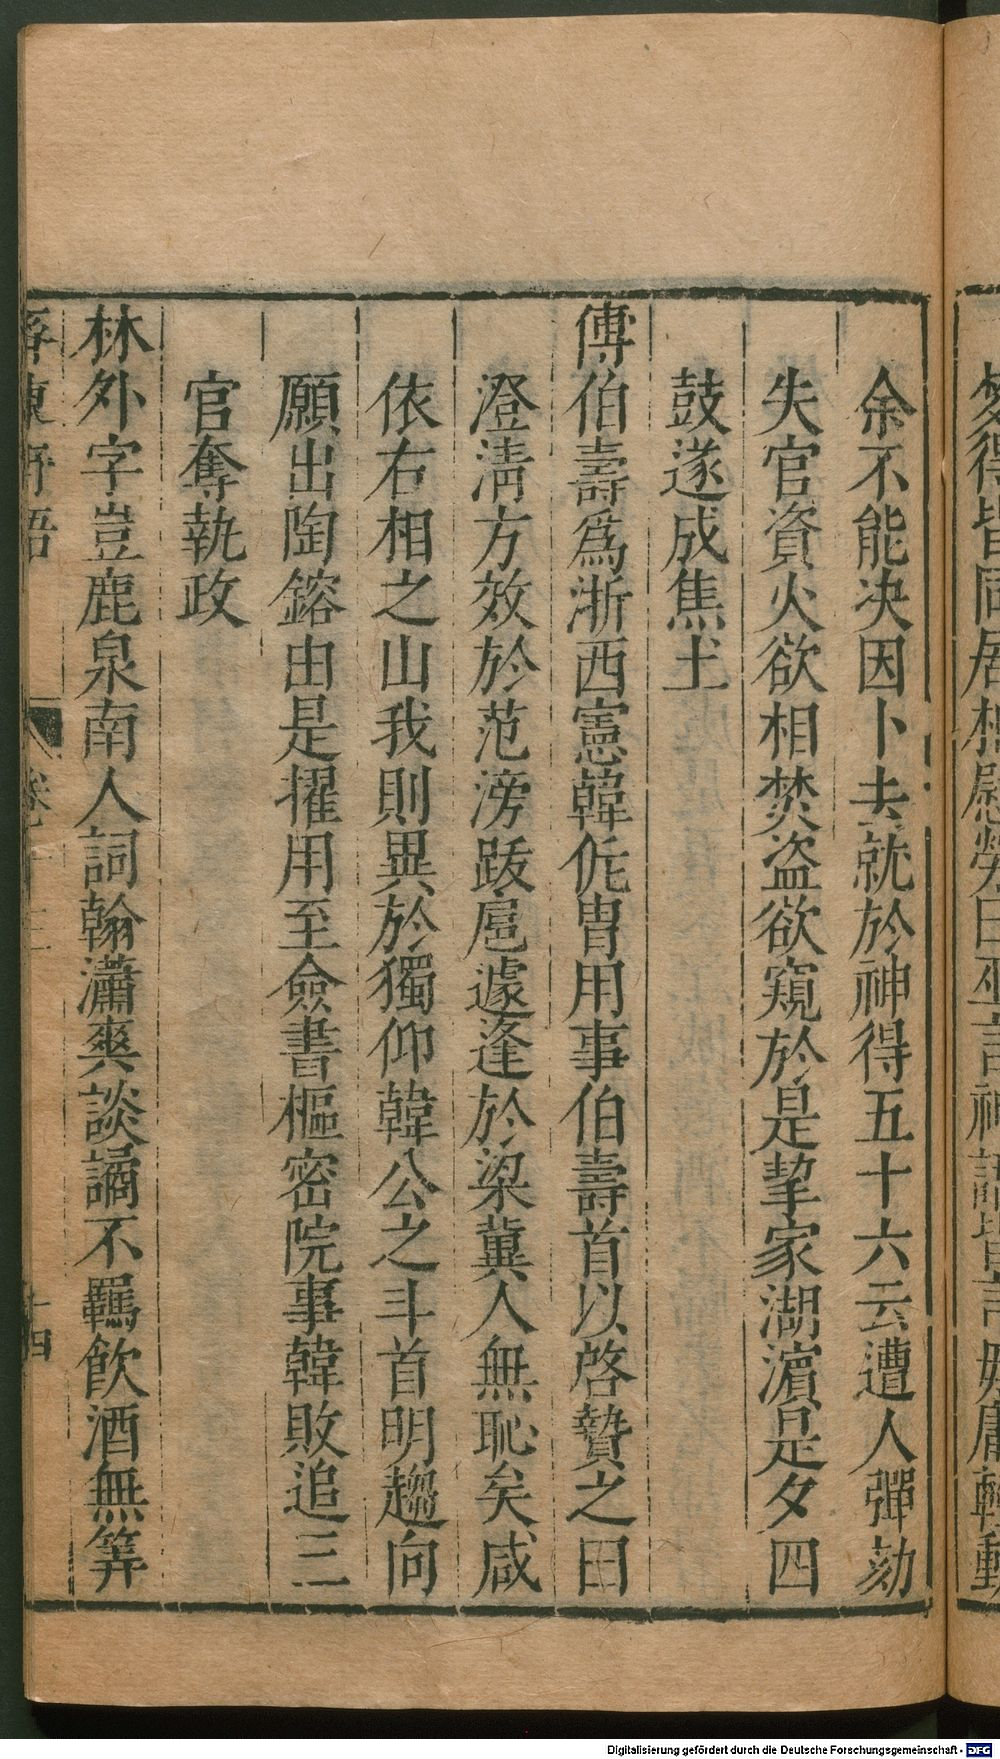 余不能决因卜去就於神得五十六云遭人彈劾
失官資火欲相焚盗欲窺於是挈家湖濵是夕四
鼓遂成焦土
傅伯壽爲浙西憲韓侂胄用事伯壽首以啓贄之曰
澄清方效於范滂跋扈遽逢於梁冀人無恥矣咸
依右相之山我則異於獨仰韓公之斗首明趨向
願出陶鎔由是擢用至僉書樞密院事韓敗追三
官奪執政
林外字豈鹿泉南人詞翰瀟爽談譎不羈飲酒無筭
卷十三
十四
Digitalisierung gefördert durch die Deutsche Forschungsgemeinschaft - DFG